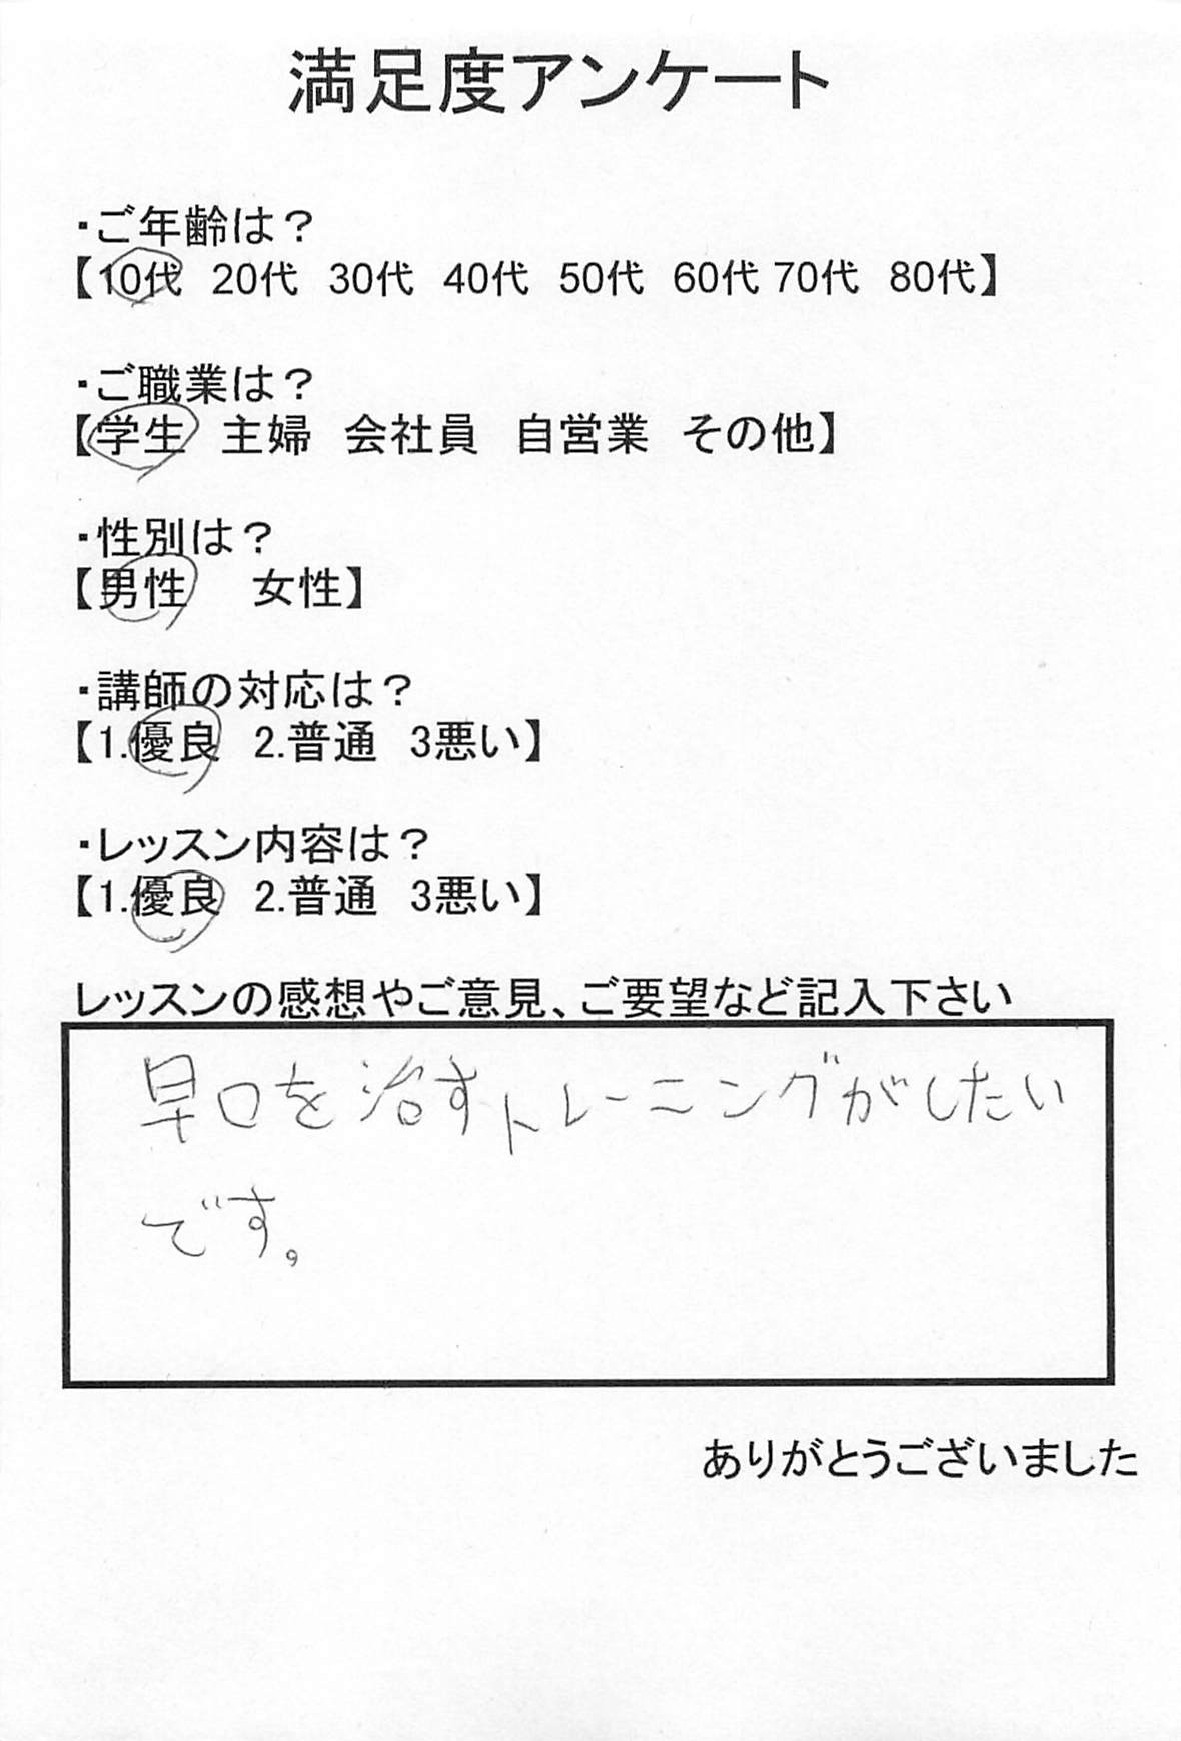 満足度アンケート
・ご年齢は？
【10代　20代　30代　40代　50代　60代 70代　80代】
・ご職業は？
【学生　主婦　会社員　自営業　その他】
・性別は？
【男性　　女性】
・講師の対応は？
【1.優良　2.普通　3悪い】
・レッスン内容は？
【1.優良　2.普通　3悪い】
レッスンの感想やご意見、ご要望など記入下さい
早口を治すトレーニングがしたい
です。
ありがとうございました